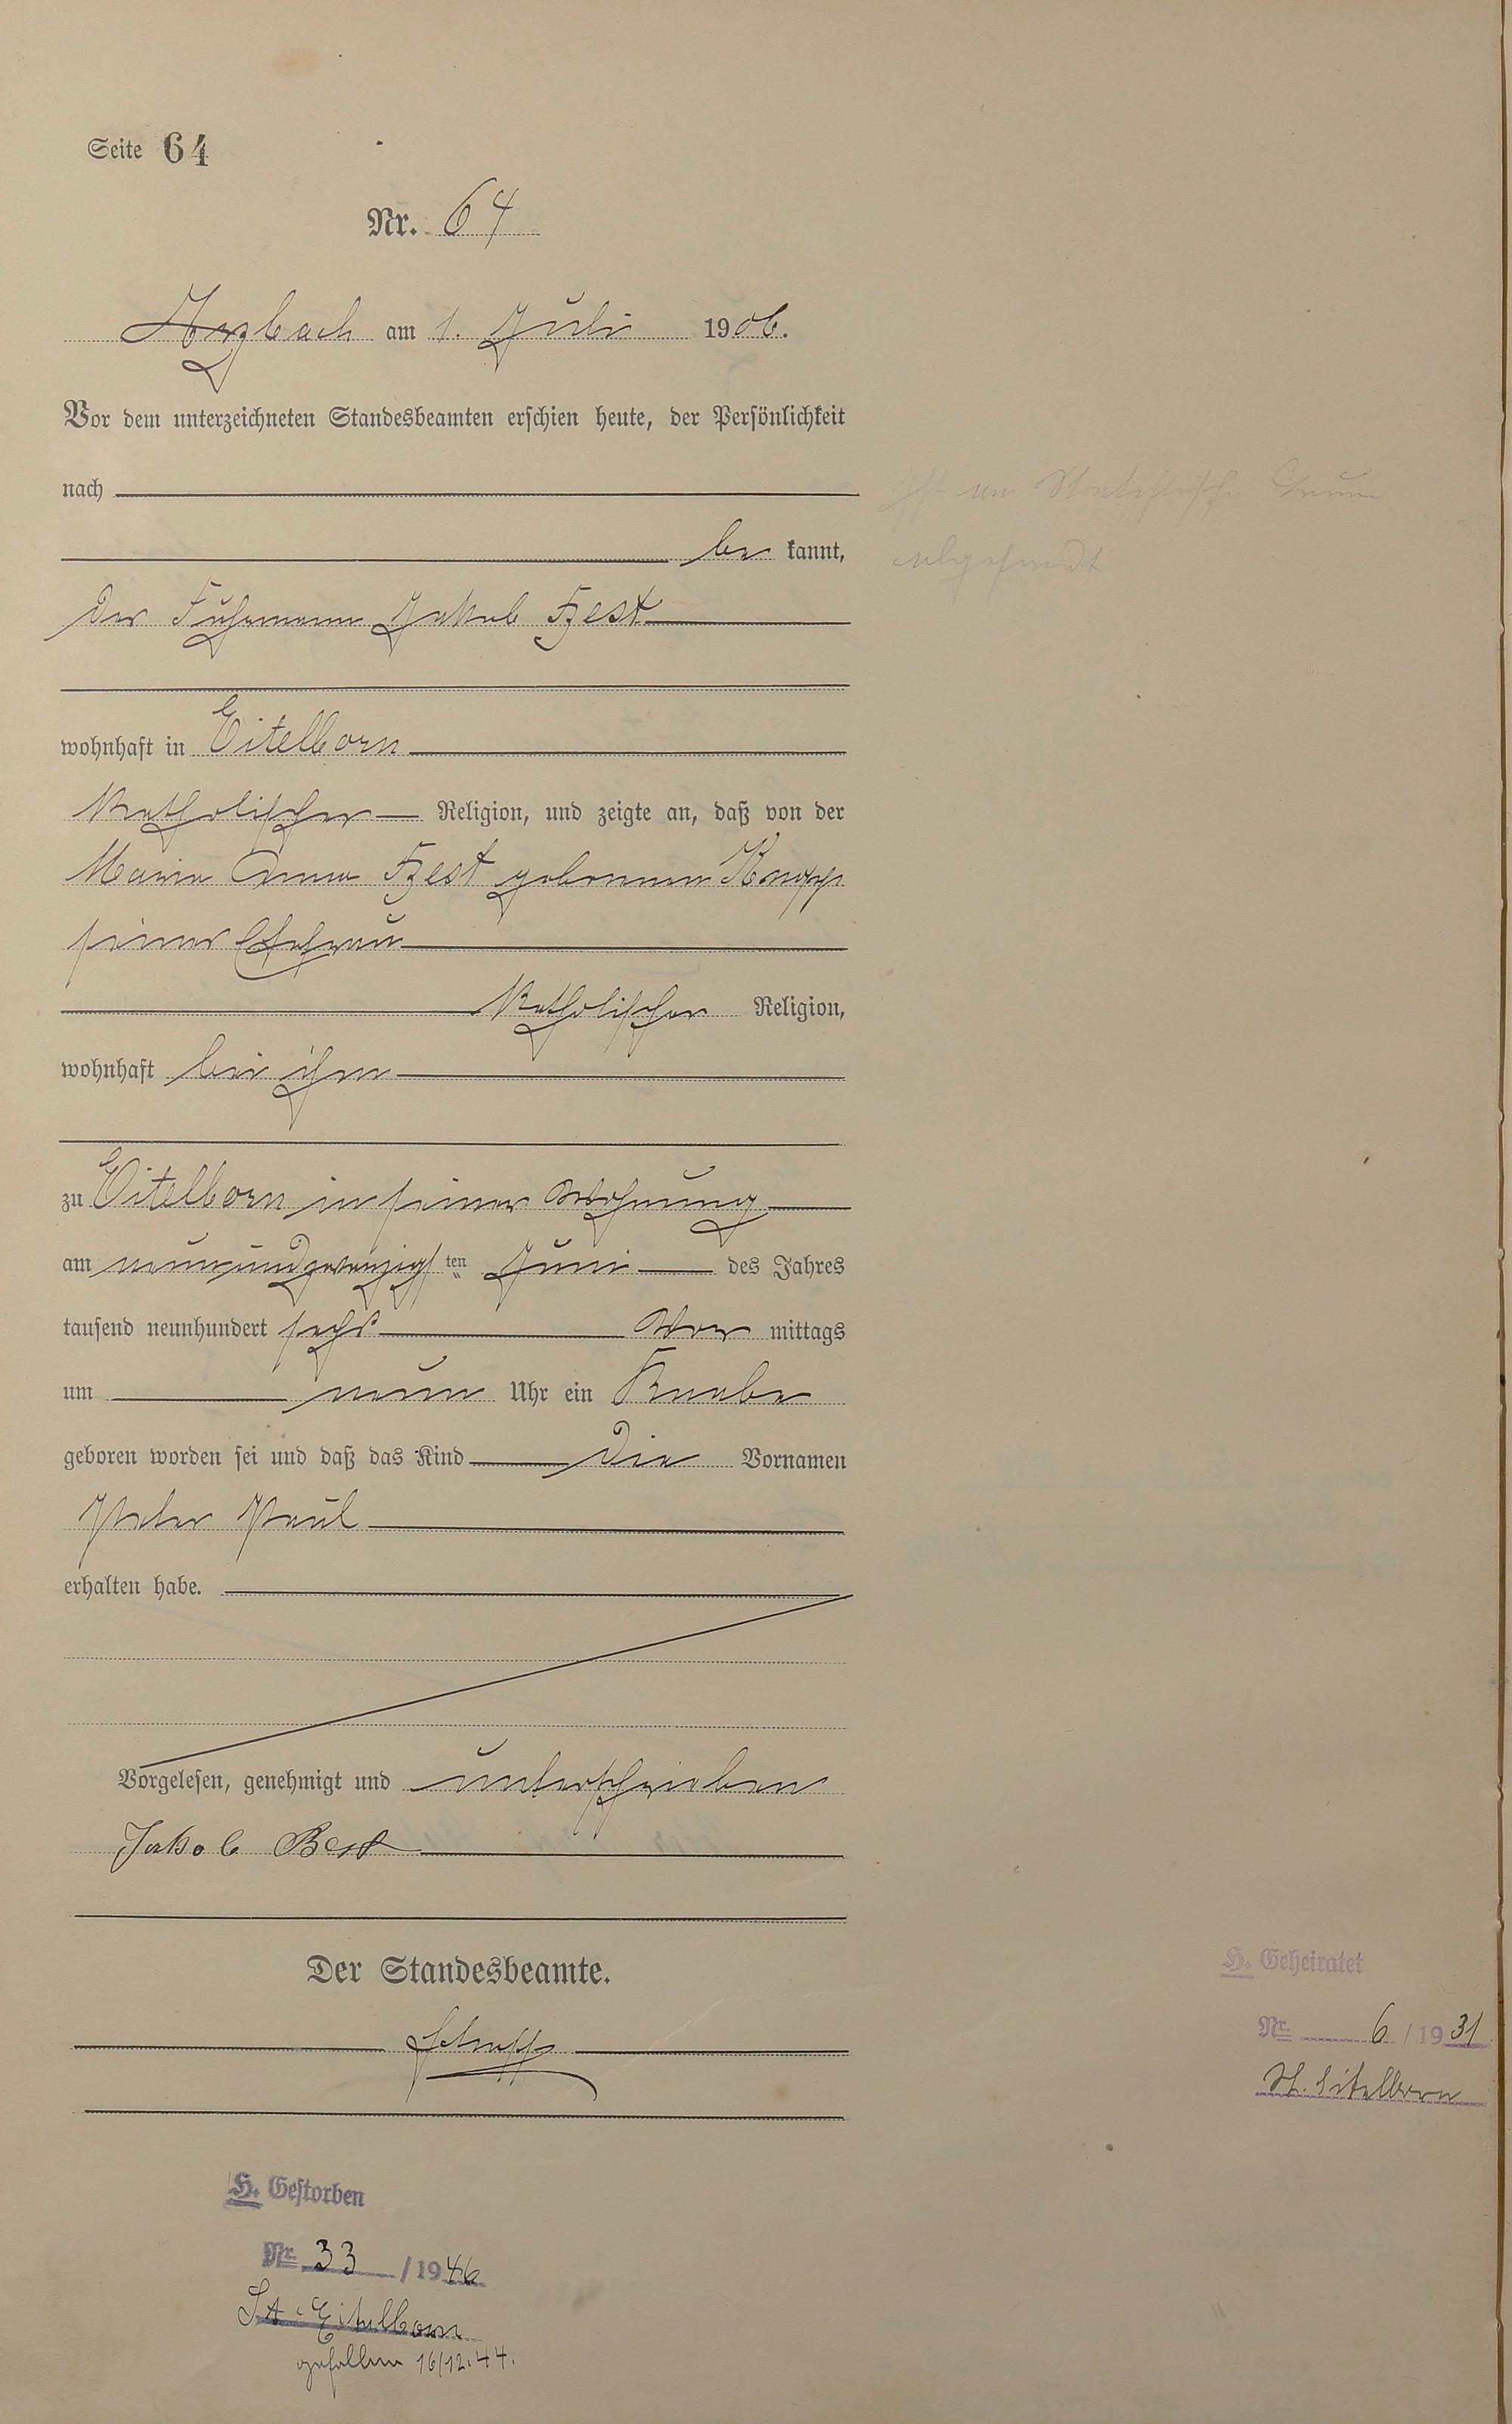 Seite 64
Nr. 64
Arzbach am 1. Juli 1906.
Vor dem unterzeichneten Standesbeamten erschien heute, der Persönlichkeit
nach
be kannt,
der Fuhrmann Jakob Best
wohnhaft in Eitelborn
katholischer Religion, und zeigte an, daß von der
Maria Anna Best geborenen Knopp
seiner Ehefrau
katholischer Religion,
wohnhaft bei ihm
zu Eitelborn in seiner Wohnung
am neunundzwanzigsten Juni des Jahres
tausend neunhundert sechs Vor mittags
um neun Uhr ein Knabe
geboren worden sei und daß das Kind die Vornamen
Peter Paul
erhalten habe.
Vorgelesen, genehmigt und unterschrieben
Jakob Best
Der Standesbeamte.
H. Geheiratet
Nr. 6 / 1931
St. Eitelborn
H. Gestorben
Nr. 33 / 1946
StA. Eitelborn
gefallen 16/12.44.